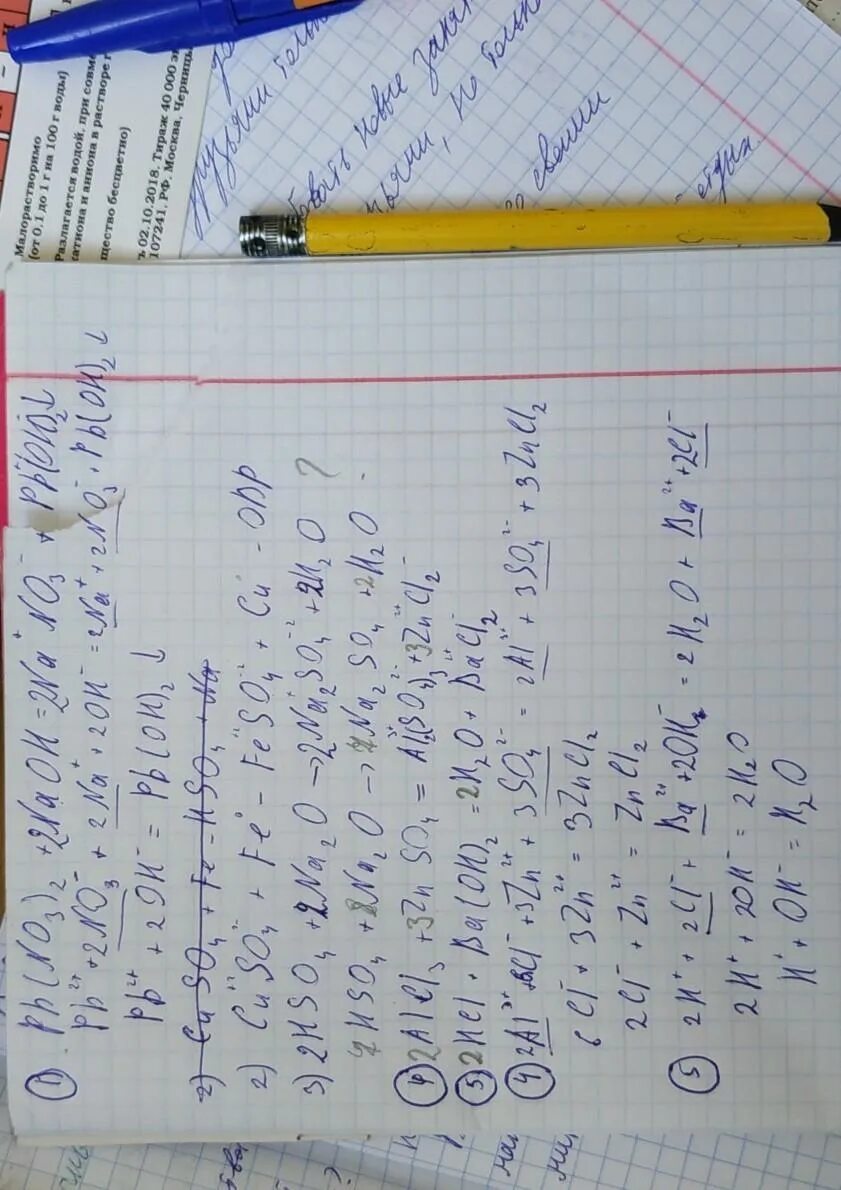 Малорастворимо
(от 0,1 до 1 г на 100 г воды)
Разлагается водой, при совме
катиона и аниона в растворе
щество бесцветно)
ъ 02.10.2018. Тираж 40 000 эк
107241, РФ, Москва, Черницы
друзьями только
новые
, но только
со своими
отдых.
① Pb(NO₃)₂ + 2NaOH = 2Na⁺NO₃⁻ + Pb(OH)₂↓
Pb²⁺ + 2NO₃⁻ + 2Na⁺ + 2OH⁻ = 2Na⁺ + 2NO₃⁻ + Pb(OH)₂↓
Pb²⁺ + 2OH⁻ = Pb(OH)₂↓
2) CuSO₄ + Fe - HSO₄ + Na
2) CuSO₄ + Fe⁰ - FeSO₄ + Cu - ОВР
3) 2HSO₄ + 2Na₂O → 2Na₂SO₄ + 2H₂O ?
HSO₄ + Na₂O → Na₂SO₄ + 2H₂O
④ 2AlCl₃ + 3ZnSO₄ = Al₂³⁺(SO₄)₃²⁻ + 3Zn²⁺Cl₂⁻
⑤ 2HCl + Ba(OH)₂ = 2H₂O + Ba²⁺Cl₂⁻
④ 2Al³⁺ + 6Cl⁻ + 3Zn²⁺ + 3SO₄²⁻ = 2Al³⁺ + 3SO₄²⁻ + 3ZnCl₂
6Cl⁻ + 3Zn²⁺ = 3ZnCl₂
2Cl⁻ + Zn²⁺ = ZnCl₂
⑤ 2H⁺ + 2Cl⁻ + Ba²⁺ + 2OH⁻ = 2H₂O + Ba²⁺ + 2Cl⁻
2H⁺ + 2OH⁻ = 2H₂O
H⁺ + OH⁻ = H₂O